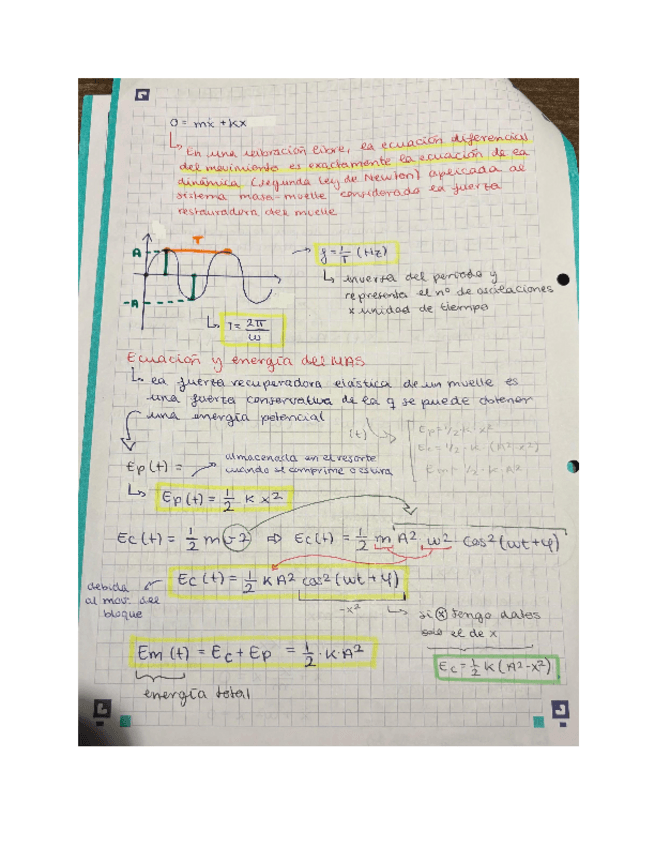 0 = mẍ + Kx
En una vibración libre, la ecuación diferencial
del movimiento es exactamente la ecuación de la
dinámica (segunda ley de Newton) aplicada al
sistema masa-muelle considerada la fuerza
restauradora del muelle
T
A
-A
f = 1/T (Hz)
inversa del periodo y
representa el nº de oscilaciones
x unidad de tiempo
T = 2π/ω
Ecuación y energía del MAS
la fuerza recuperadora elástica de un muelle es
una fuerza conservativa de la q se puede obtener
una energía potencial
(t)
Ep = 1/2 · K · x²
Ec = 1/2 · K · (A² - x²)
Em = 1/2 · K · A²
Ep(t) =
almacenada en el resorte
cuando se comprime o estira
Ep(t) = 1/2 K x²
Ec(t) = 1/2 m ⇒ Ec(t) = 1/2 m A² ω² cos²(ωt + φ)
Ec(t) = 1/2 K A² cos²(ωt + φ)
debida
al mov. del
bloque
-x²
si ⊗ tengo datos
solo el de x
Em(t) = Ec + Ep = 1/2 · K · A²
Ec = 1/2 K (A² - x²)
energía total